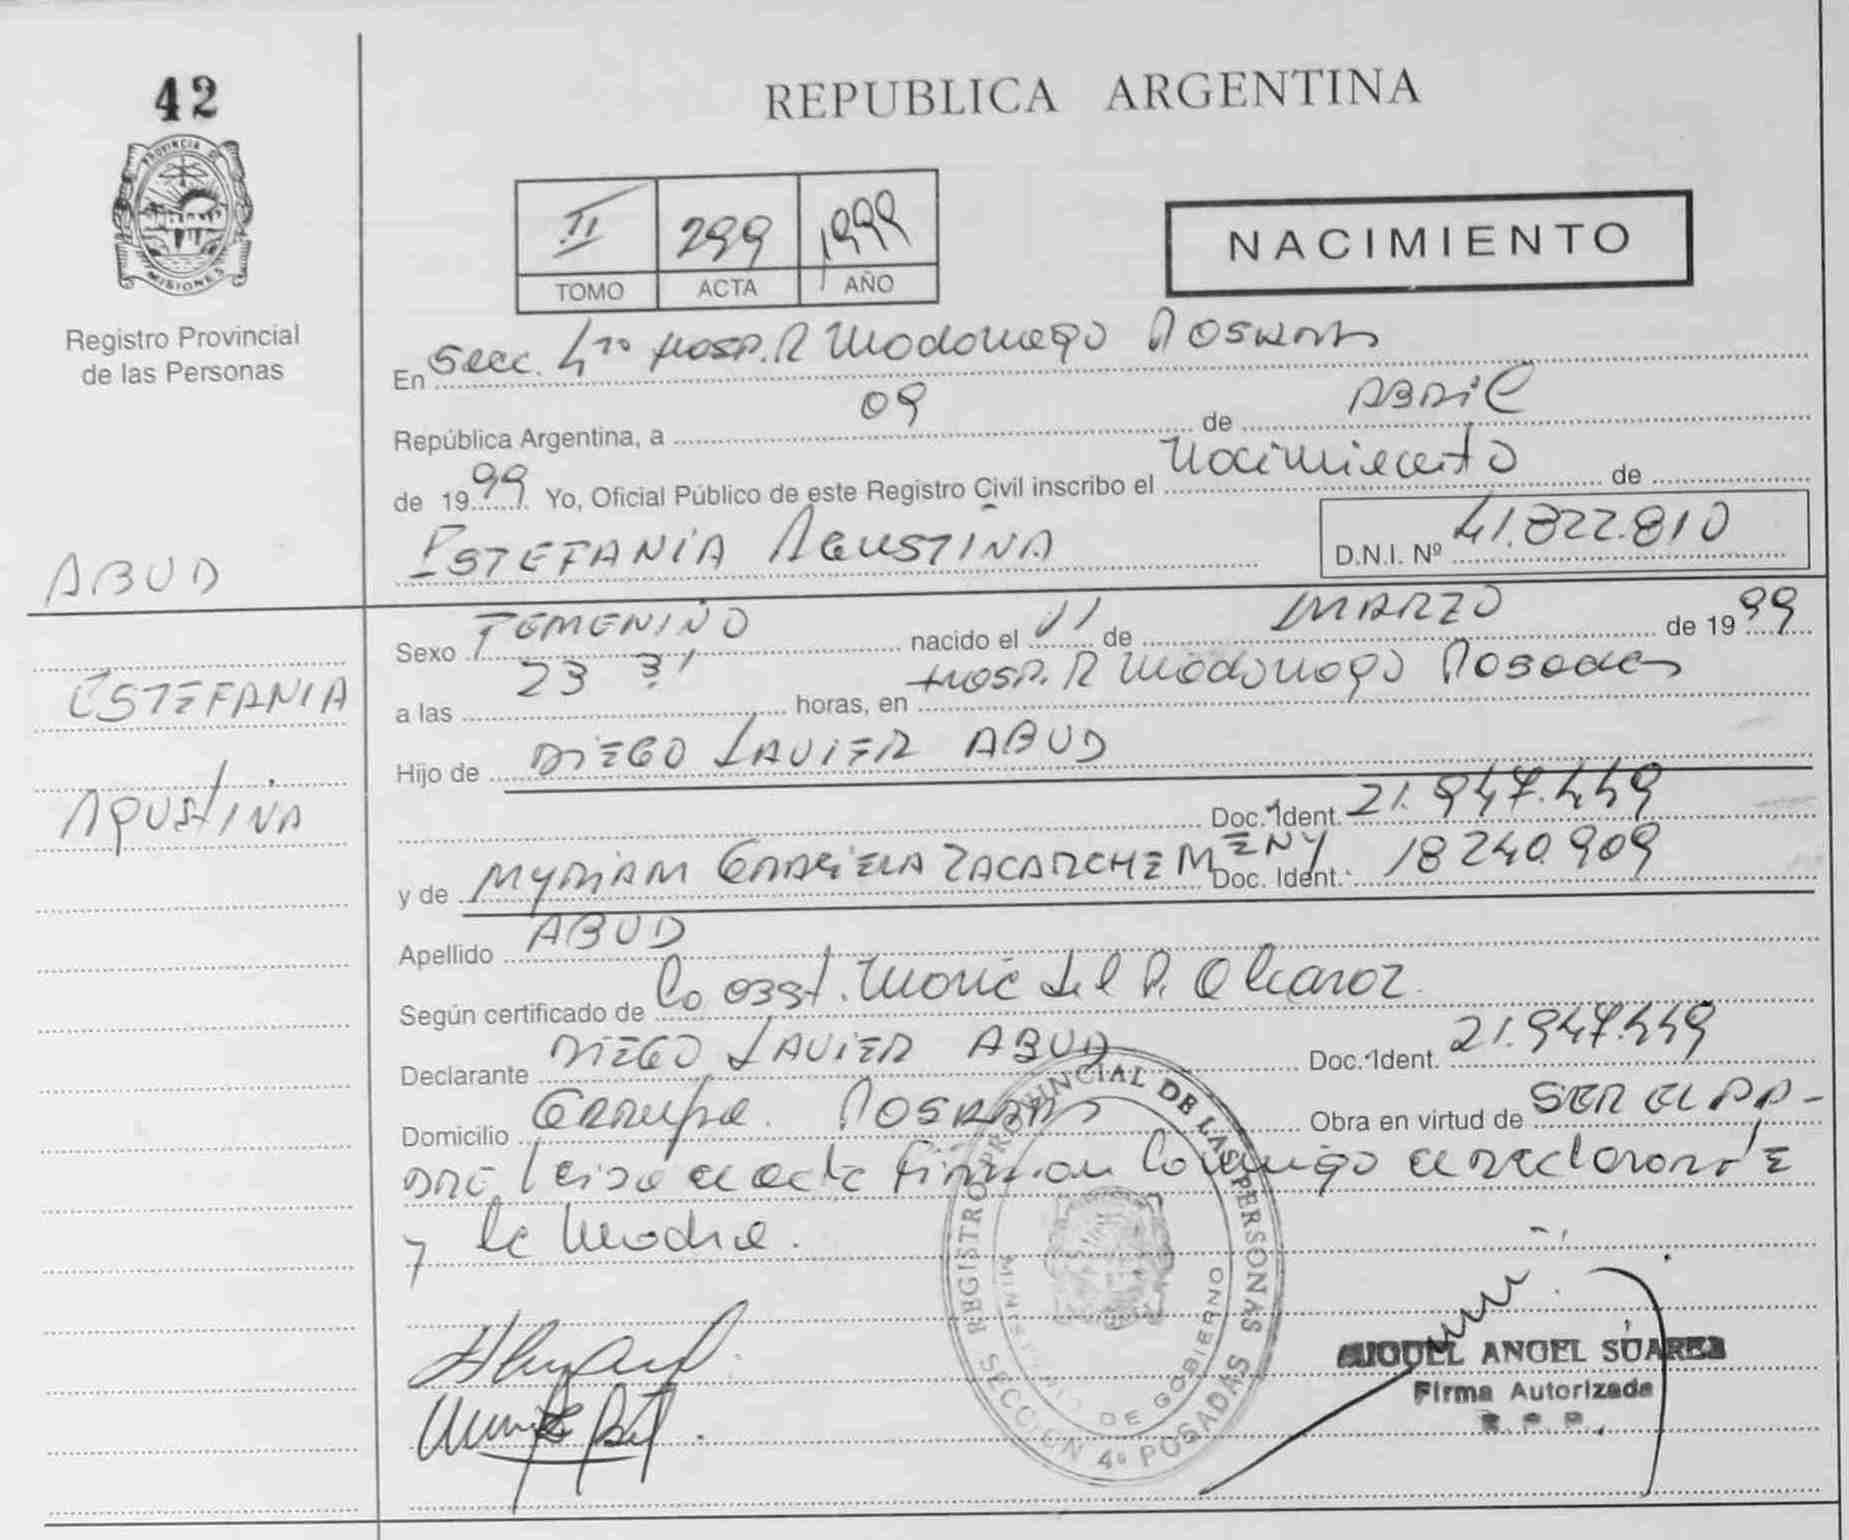 42
PROVINCIA DE
MISIONES
Registro Provincial
de las Personas
ABUD
ESTEFANIA
Agustina
REPUBLICA ARGENTINA
II 299 1999
TOMO ACTA AÑO
NACIMIENTO
En Secc. 4ta Hosp. R Madariaga Posadas
República Argentina, a 09 de ABRIL
de 1999 Yo, Oficial Público de este Registro Civil inscribo el Nacimiento de
ESTEFANIA AGUSTINA D.N.I. Nº 41.822.810
Sexo FEMENINO nacido el 11 de MARZO de 1999
a las 23 horas, en Hosp. R Madariaga Posadas
Hijo de DIEGO JAVIER ABUD
Doc. Ident. 21.947.449
y de MYRIAM GABRIELA ZACARCHEMENY Doc. Ident. 18240.909
Apellido ABUD
Según certificado de La Obst. Maria del P. Alcaraz
Declarante DIEGO JAVIER ABUD Doc. Ident. 21.947.449
Domicilio Garupa. POSADAS Obra en virtud de SER EL PA-
DRE, leida el acta firman conmigo el declarante
y la Madre.
REGISTRO PROVINCIAL DE LAS PERSONAS
MINISTERIO DE GOBIERNO
SECCION 4º POSADAS
MIGUEL ANGEL SUAREZ
Firma Autorizada
R. P. P.